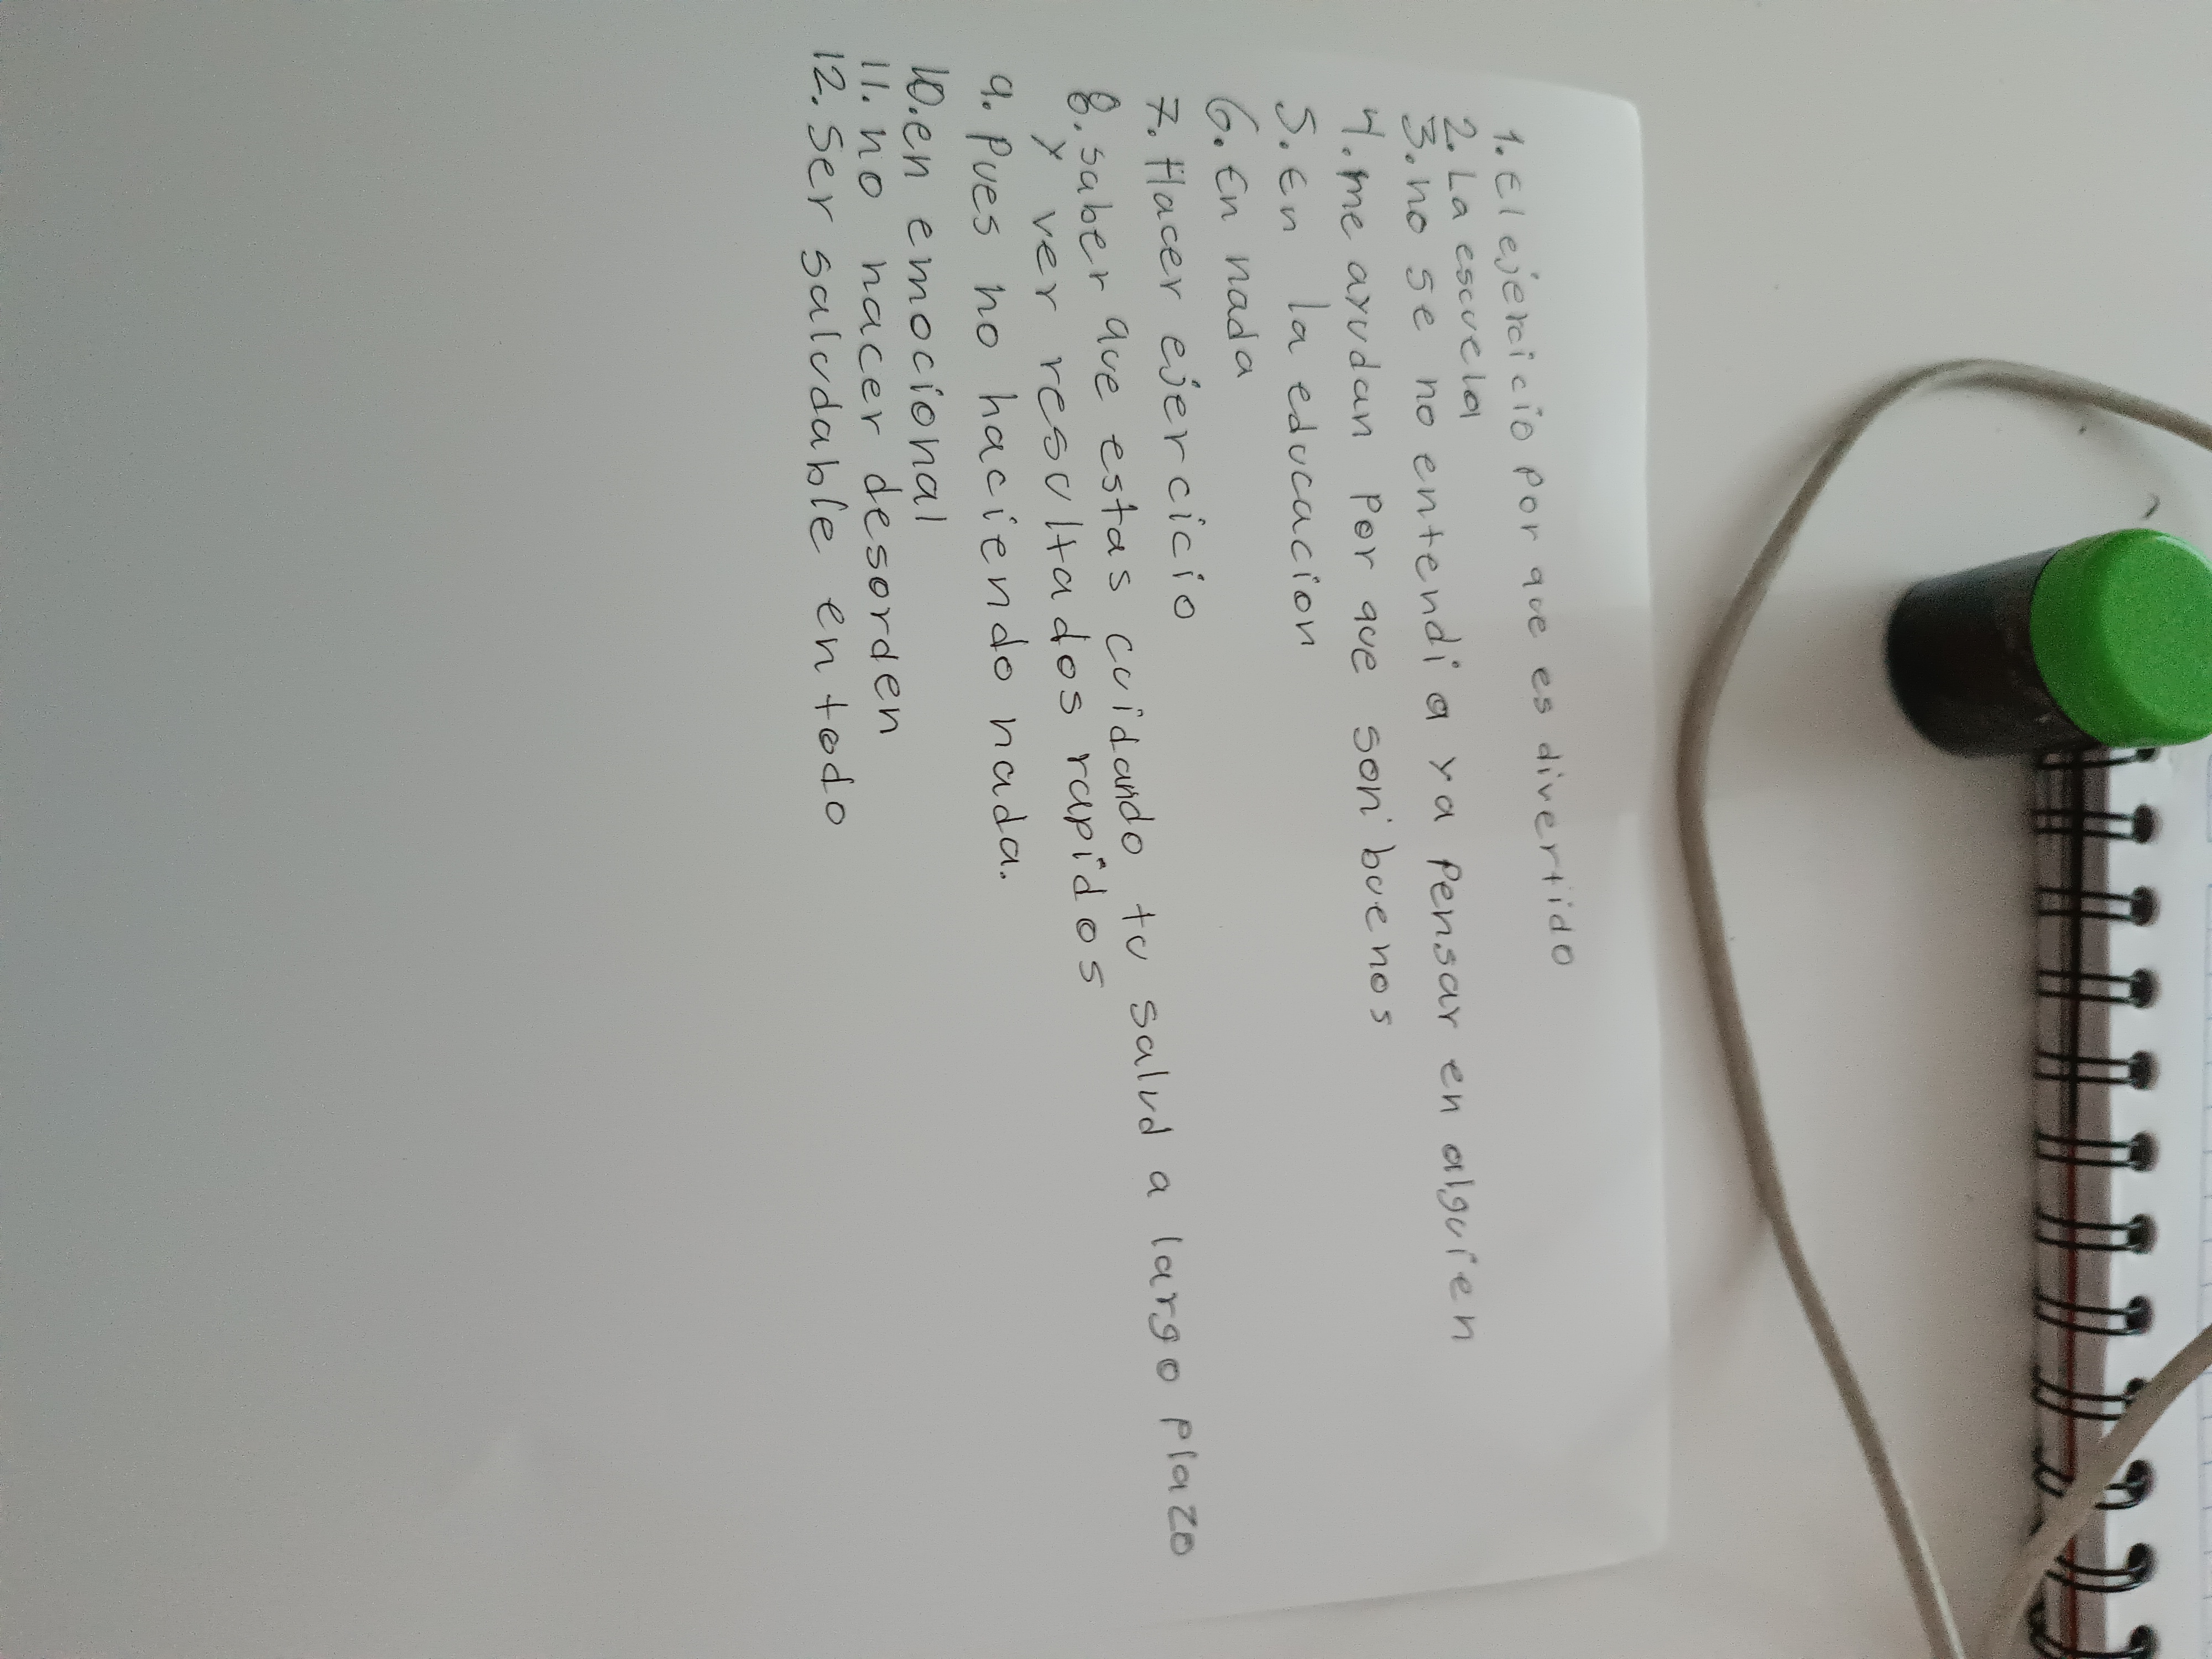 1. El ejercicio por que es divertido
2. La escuela
3. no se no entendi a ya Pensar en alguien
4. me ayudan Por que son buenos
5. En la educacion
6. En nada
7. Hacer ejercicio
8. saber que estas cuidando tu salud a largo plazo
y ver resultados rapidos
9. Pues no haciendo nada.
10. en emocional
11. no hacer desorden
12. Ser saludable en todo